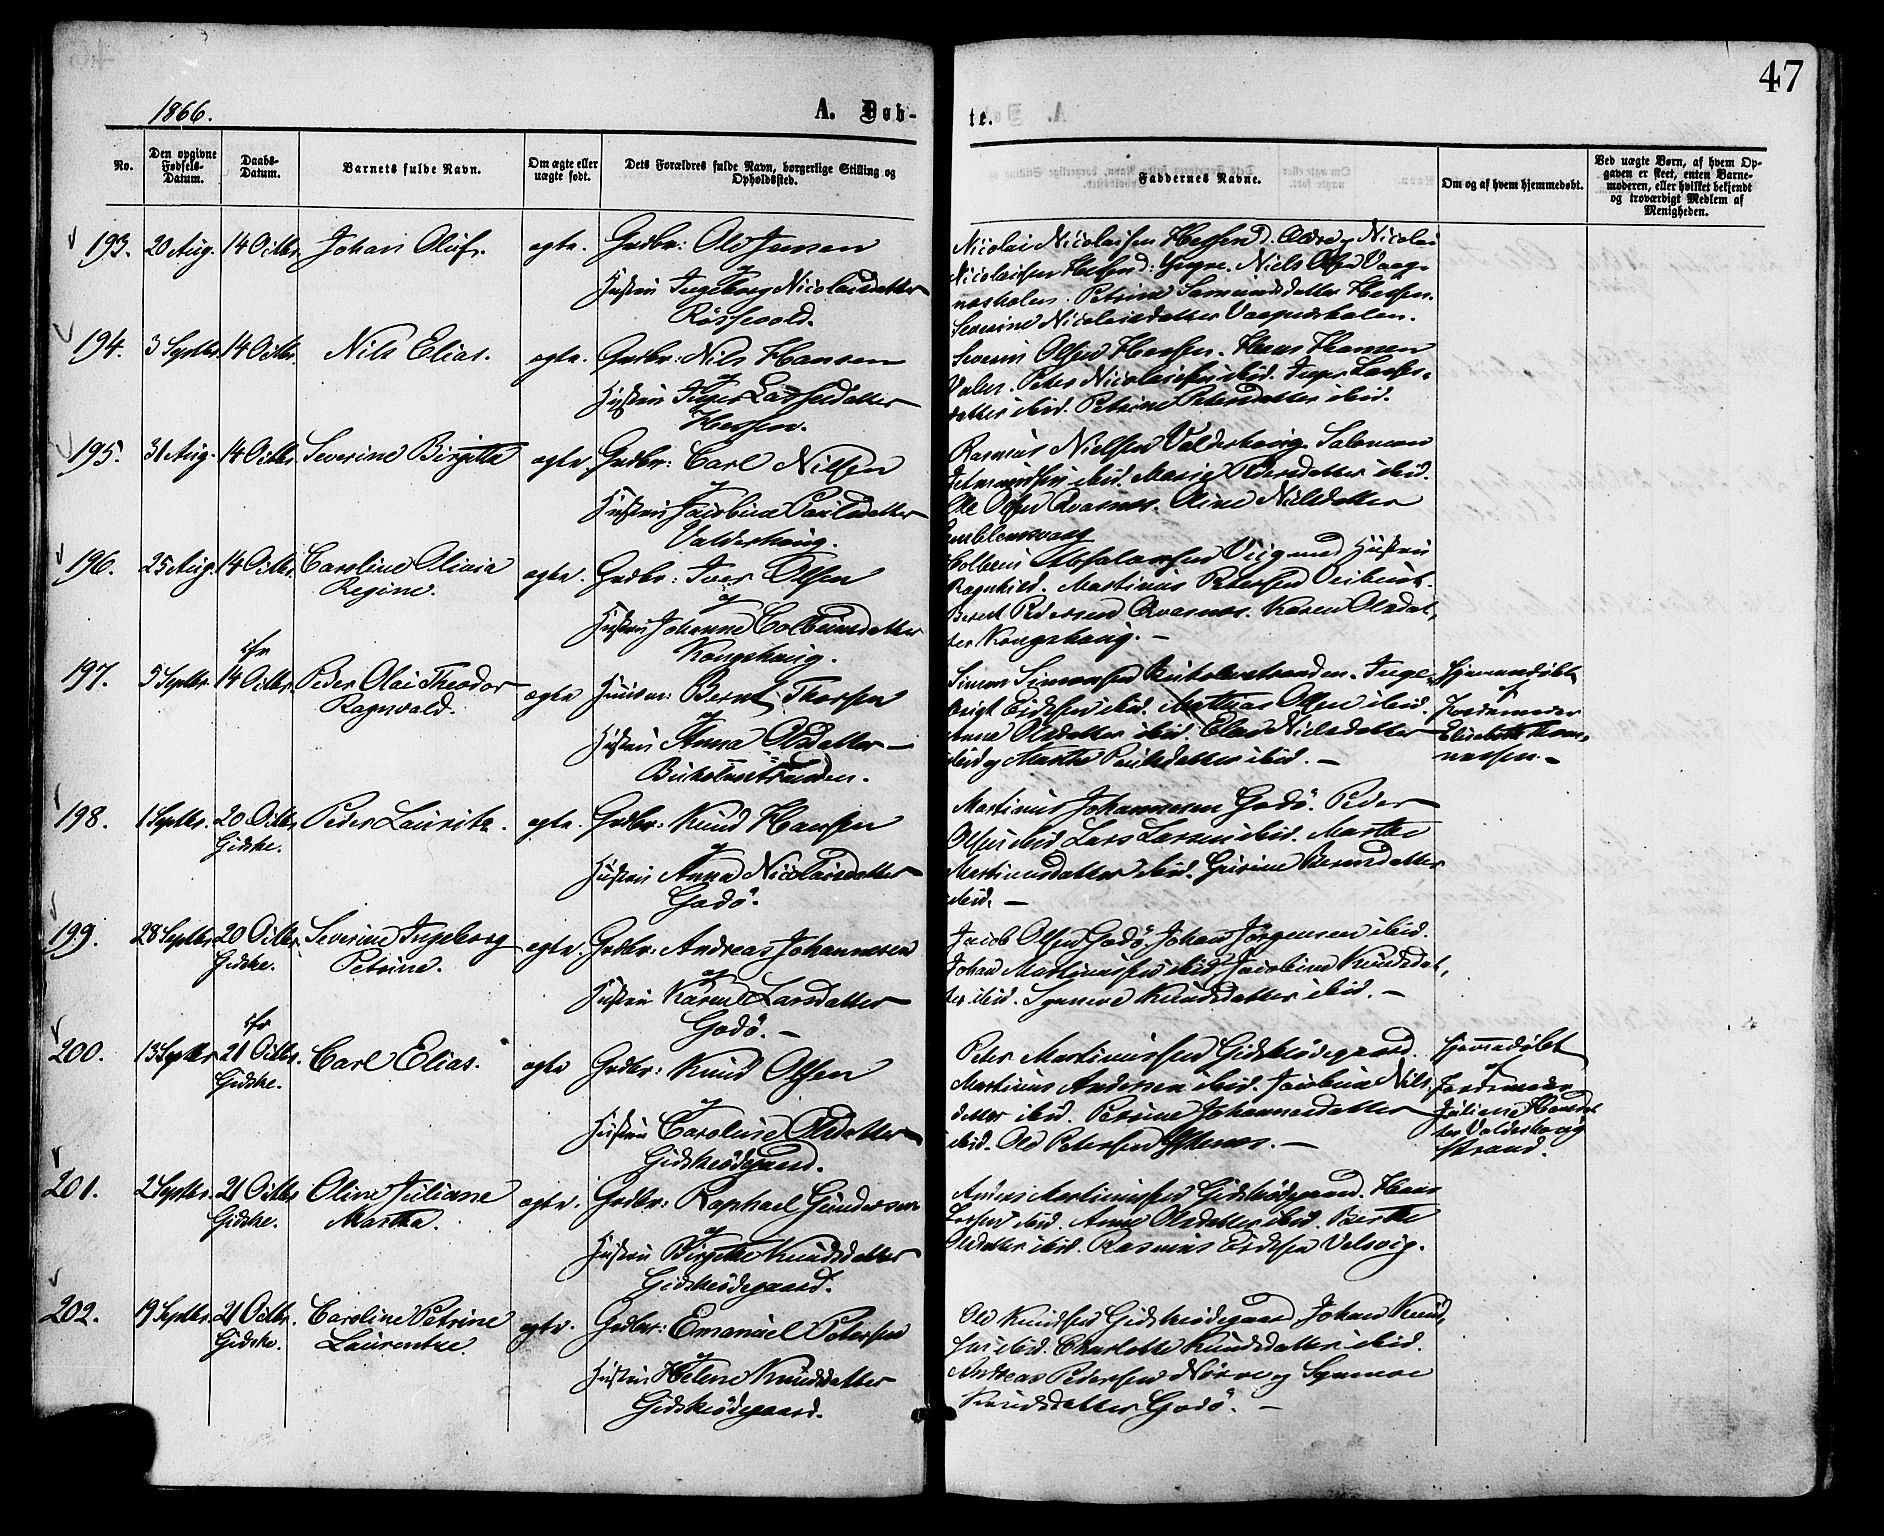 47
1866.
A. Døb-
te.
No.
Den opgivne Fødsels-Datum.
Daabs-Datum.
Barnets fulde Navn.
Om ægte eller uægte født.
Dets Forældres fulde Navn, borgerlige Stilling og Opholdssted.
Faddernes Navne.
Om og af hvem hjemmedøbt.
Ved uægte Børn, af hvem Opgaven er skeet, enten Barnemoderen, eller hvilket bekjendt og troværdigt Medlem af Menigheden.
193. 20 Aug. 14 Octbr. Johan Oluf. ægte. Grdbr: Ole Jensen
og
Hustru Ingeborg Nicolaisdatter
Røssevold.
Nicolai Nicolaisen Hessen d. Ældre og Nicolai
Nicolaisen Hessen d: Yngre. Niels Olsen Vaag-
nesholen. Petrine Samundsdatter Hessen.
Severine Nicolaisdatter Vaagnesholen.
194. 3 Septbr. 14 Octbr. Nils Elias. ægte. Grdbr: Nils Hansen
og
Hustru Inger Larsdatter
Hessen.
Severin Olsen Hessen. Hans Hansen
Valen. Peter Nicolaisen ibid. Inger Lars-
datter ibid. Petrine Petersdatter ibid.
195. 31 Aug. 14 Octbr. Severine Birgitte ægte. Grdbr: Carl Nilsen
og
Hustru Jacobine Paulsdatter
Valderhoug.
Rasmus Nielsen Valderhoug. Salomon
ibid. Marie Pedersdatter ibid.
Ole Olsen Qvasnes. Oline Nilsdatter
196. 25 Aug. 14 Octbr. Caroline Olivia
Regine. ægte. Grdbr: Iver Olsen
og
Hustru Johanne Colbeinsdatter
Kongshoug.
Colbein Absalonsen Viig med Hustru
Ragnhild. Martinus Petersen
Berent Pedersen Qvasnes. Karen Olsdat-
ter Kongshoug. —
197. 5 Septbr. cfr 14 Octbr. Peder Olai Theodor
Ragnvald. ægte Huusm: Bernt Thorsen
og
Hustru Anna Olsdatter
Simon Simonsen Inge-
brigt ibid. Mathias Olsen ibid.
Anne Olsdatter ibid. Elen Nielsdatter
ibid og Marthe ibid. —
hjemmedøbt
af
Jordemoder
Elisabeth
198. 1 Septbr. 20 Octbr.
Gidske. Peder Lauritz. ægte. Grdbr: Knud Hansen
og
Hustru Anna Nicolaisdatter
Godö.
Martinus Johannesen Godö. Peder
Olsen ibid. Lars Larsen ibid. Marthe
Martinusdatter ibid.
ibid. —
199. 28 Septbr. 20 Octbr.
Gidske. Severine Ingeborg
Petrine. ægte. Grdbr: Andreas Johannesen
og
Hustru Karen Larsdatter
Godö. —
Jacob Olsen Godö. Johan Jörgensen ibid.
Johan Martinussen ibid. Jacobine Knudsdat-
ter ibid. Synneve Knudsdatter ibid. —
200. 13 Septbr. cfr 21 Octbr.
Gidske. Carl Elias. ægte Grdbr: Knud Olsen
og
Hustru Caroline Olsdatter
Gidskeödegaard.
Peter Martinussen Gidskeödegaard.
Martinus Andersen ibid. Jacobine Nils-
datter ibid. Petrine Johannesdatter
ibid. Ole Petersen —
hjemmedøbt
af
Jordemoder
Juliane Hansdat-
ter Valderhoug
strand.
201. 2 Septbr. 21 Octbr.
Gidske. Oline Juliane
Martha. ægte. Grdbr: Raphael Gundersen
og
Hustru Birgitte Knudsdatter
Gidskeödegaard.
Anders Martinussen Gidskeödegaard. Hans
Larsen ibid. Anne Olsdatter ibid. Berthe
Olsdatter ibid. Rasmus Velsvig.
202. 19 Septbr. 21 Octbr.
Gidske. Caroline Petrine
Laurentze. ægte. Grdbr: Emanuel Petersen
og
Hustru Helene Knudsdatter
Gidskeödegaard.
Ole Knudsen Gidskeödegaard Johan Knud-
sen ibid. Charlotte Knudsdatter ibid.
Andreas Pedersen Nörve og Synneve
Knudsdatter Godö. —